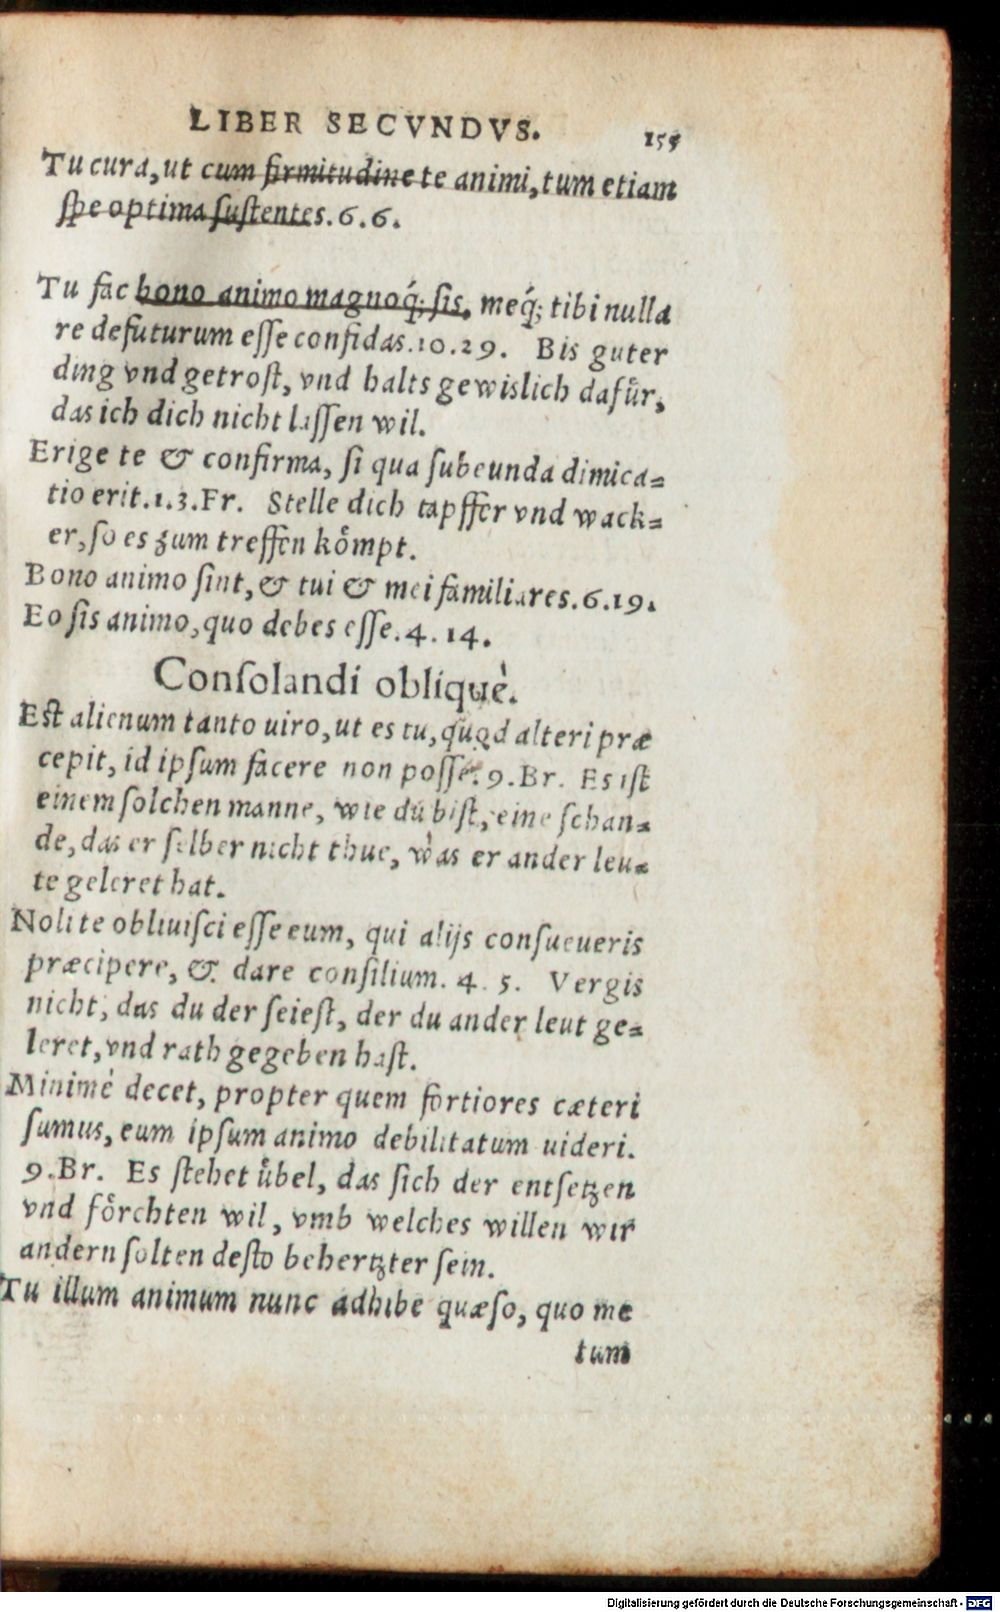 LIBER SECVNDVS. 155
Tu cura, ut cum firmitudine te animi, tum etiam
ſpe optima ſuſtentes. 6. 6.
Tu fac bono animo magnoq́; ſis, meq́; tibi nulla
re defuturum eſſe confidas. 10. 29. Bis guter
ding vnd getroſt, vnd halts gewislich dafuͤr,
das ich dich nicht laſſen wil.
Erige te & confirma, ſi qua ſubeunda dimica⸗
tio erit. 1. 3. Fr. Stelle dich tapffer vnd wack⸗
er, ſo es zum treffen koͤmpt.
Bono animo ſint, & tui & mei familiares. 6. 19.
Eo ſis animo, quo debes eſſe. 4. 14.
Conſolandi obliquè.
Eſt alienum tanto uiro, ut es tu, quod alteri præ
cepit, id ipſum facere non poſſe. 9. Br. Es iſt
einem ſolchen manne, wie du biſt, eine ſchan⸗
de, das er ſelber nicht thue, was er ander leu⸗
te geleret hat.
Noli te obliuiſci eſſe eum, qui alijs conſueueris
præcipere, & dare conſilium. 4. 5. Vergis
nicht, das du der ſeieſt, der du ander leut ge⸗
leret, vnd rath gegeben haſt.
Minimè decet, propter quem fortiores cæteri
ſumus, eum ipſum animo debilitatum uideri.
9. Br. Es ſtehet uͤbel, das ſich der entſetzen
vnd foͤrchten wil, vmb welches willen wir
andern ſolten deſto behertzter ſein.
Tu illum animum nunc adhibe quæſo, quo me
tum
Digitalisierung gefördert durch die Deutsche Forschungsgemeinschaft - DFG